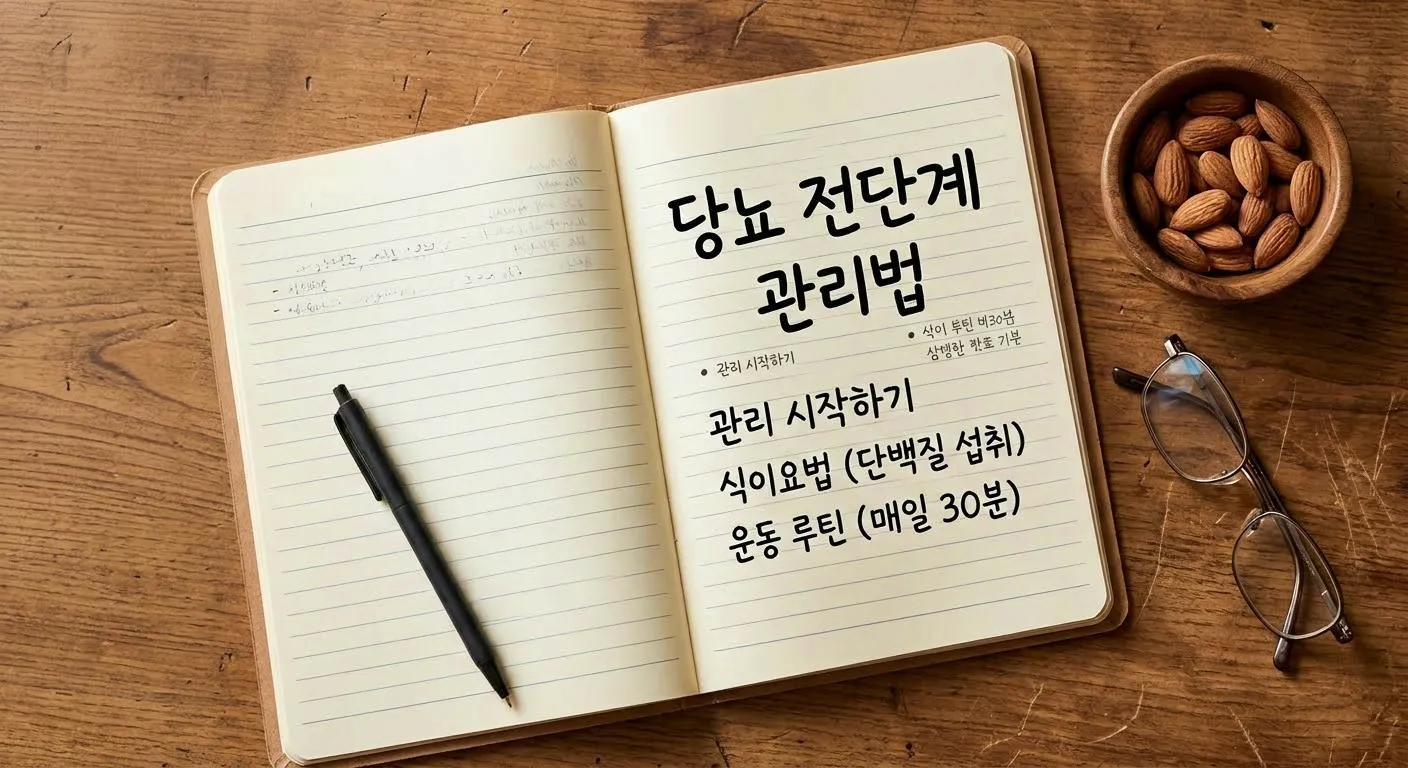 당뇨 전단계
관리법
• 관리 시작하기
• 식이 루틴 비30분
기분
관리 시작하기
식이요법 (단백질 섭취)
운동 루틴 (매일 30분)